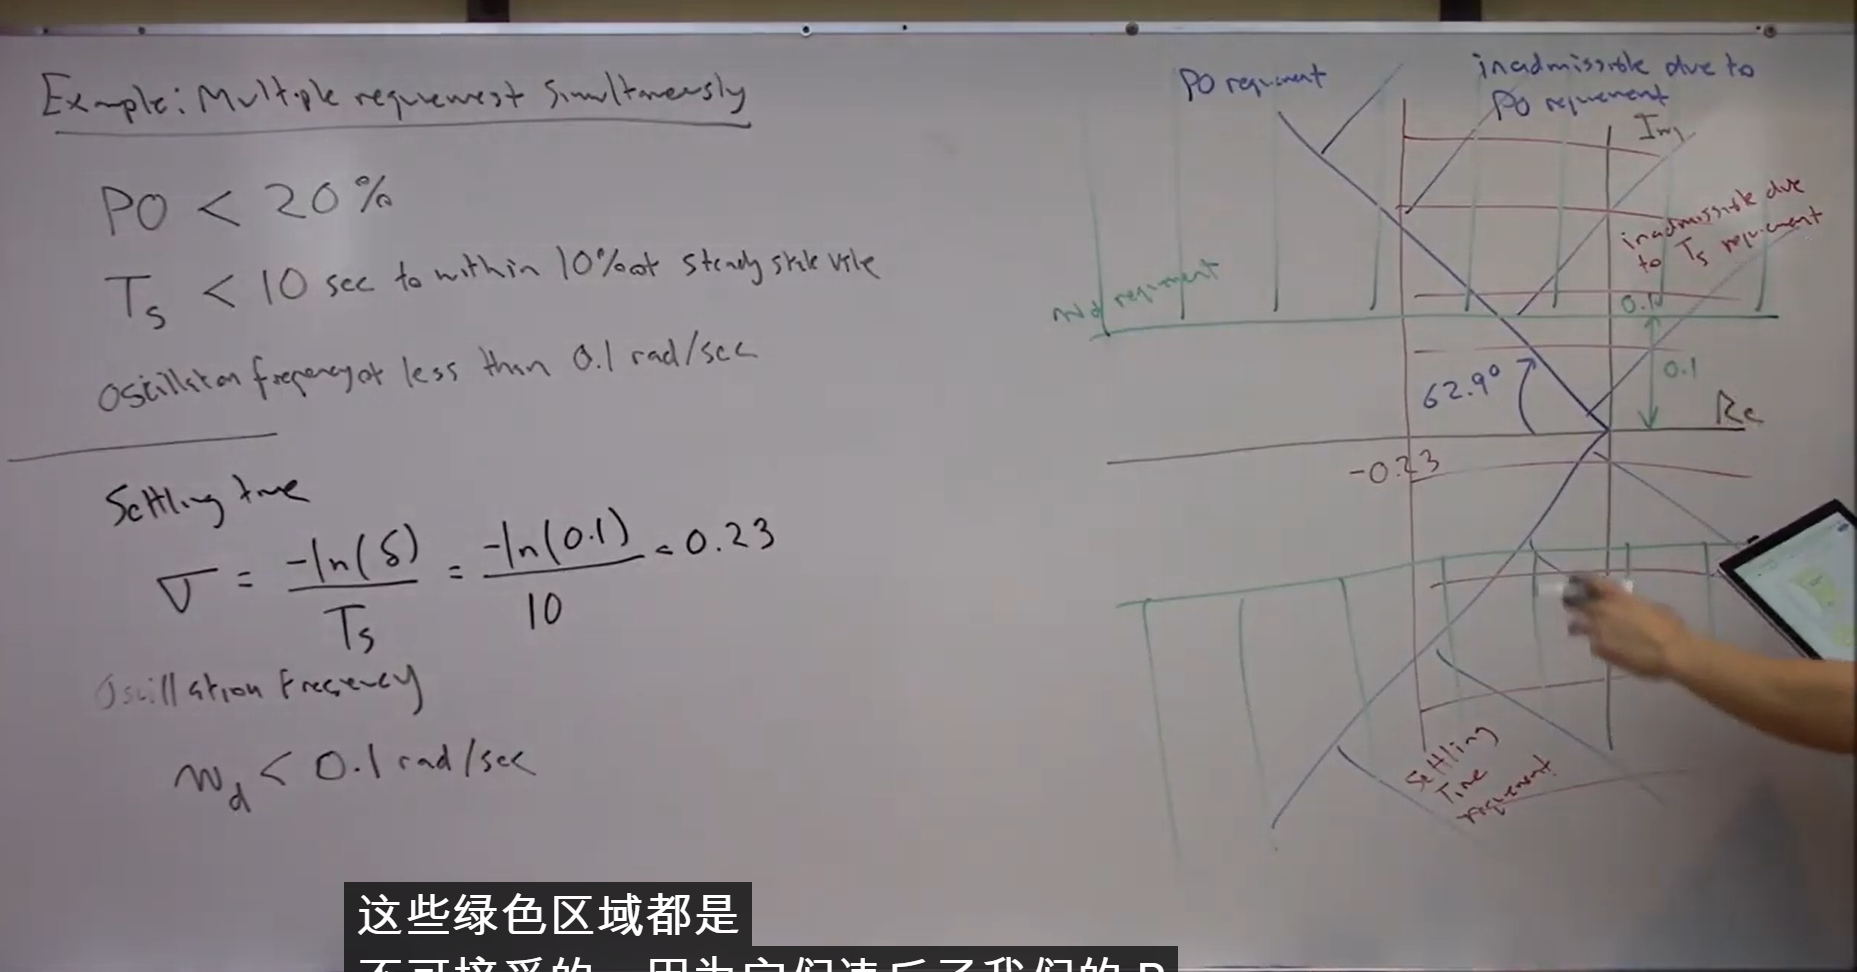 Example: Multiple requirement Simultaneously
PO < 20%
Ts < 10 sec to within 10% of steady state vale
Oscillation frequency of less than 0.1 rad/sec
Settling time
σ = -ln(δ) / Ts = -ln(0.1) / 10 = 0.23
Oscillation Frequency
wd < 0.1 rad/sec
PO requirment
inadmissible due to
PO requirement
Im
inadmissible due
to Ts requirment
wd requirment
0.1
0.1
62.9°
Re
-0.23
Settling
Time
requirment
这些绿色区域都是